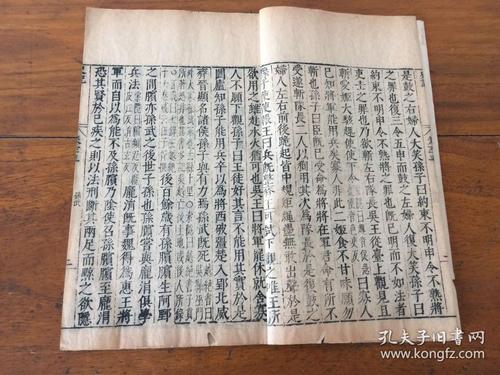 是鼓之右婦人大笑孫子曰約束不明申令不熟將
之罪也復三令五申而鼓之左婦人復大笑孫子曰
約束不明申令不熟將之罪也既已明而不如法者
吏士之罪也乃欲斬左右隊長吳王從臺上觀見且
斬愛姬大駭趣使使下令曰寡人
已知將軍能用兵矣寡人非此二姬食不甘味願勿
斬也孫子曰臣既已受命為將將在軍君命有所不
受遂斬隊長二人以徇用其次為隊長於是復鼓之
婦人左右前後跪起皆中規矩繩墨無敢出聲於是
孫子使使報王曰兵既整齊王可試下觀之唯王所
欲用之雖赴水火猶可也吳王曰將軍罷休就舍寡
人不願下觀孫子曰王徒好其言不能用其實於是
闔廬知孫子能用兵卒以為將西破彊楚入郢北威
齊晉顯名諸侯孫子與有力焉孫武既死
後百餘歲有孫臏臏生阿鄄
之間臏亦孫武之後世子孫也孫臏嘗與龐涓俱學
兵法龐涓既事魏得為惠王將
軍而自以為能不及孫臏乃陰使召孫臏臏至龐涓
恐其賢於己疾之則以法刑斷其兩足而黥之欲隱
孔夫子旧书网
www.kongfz.com